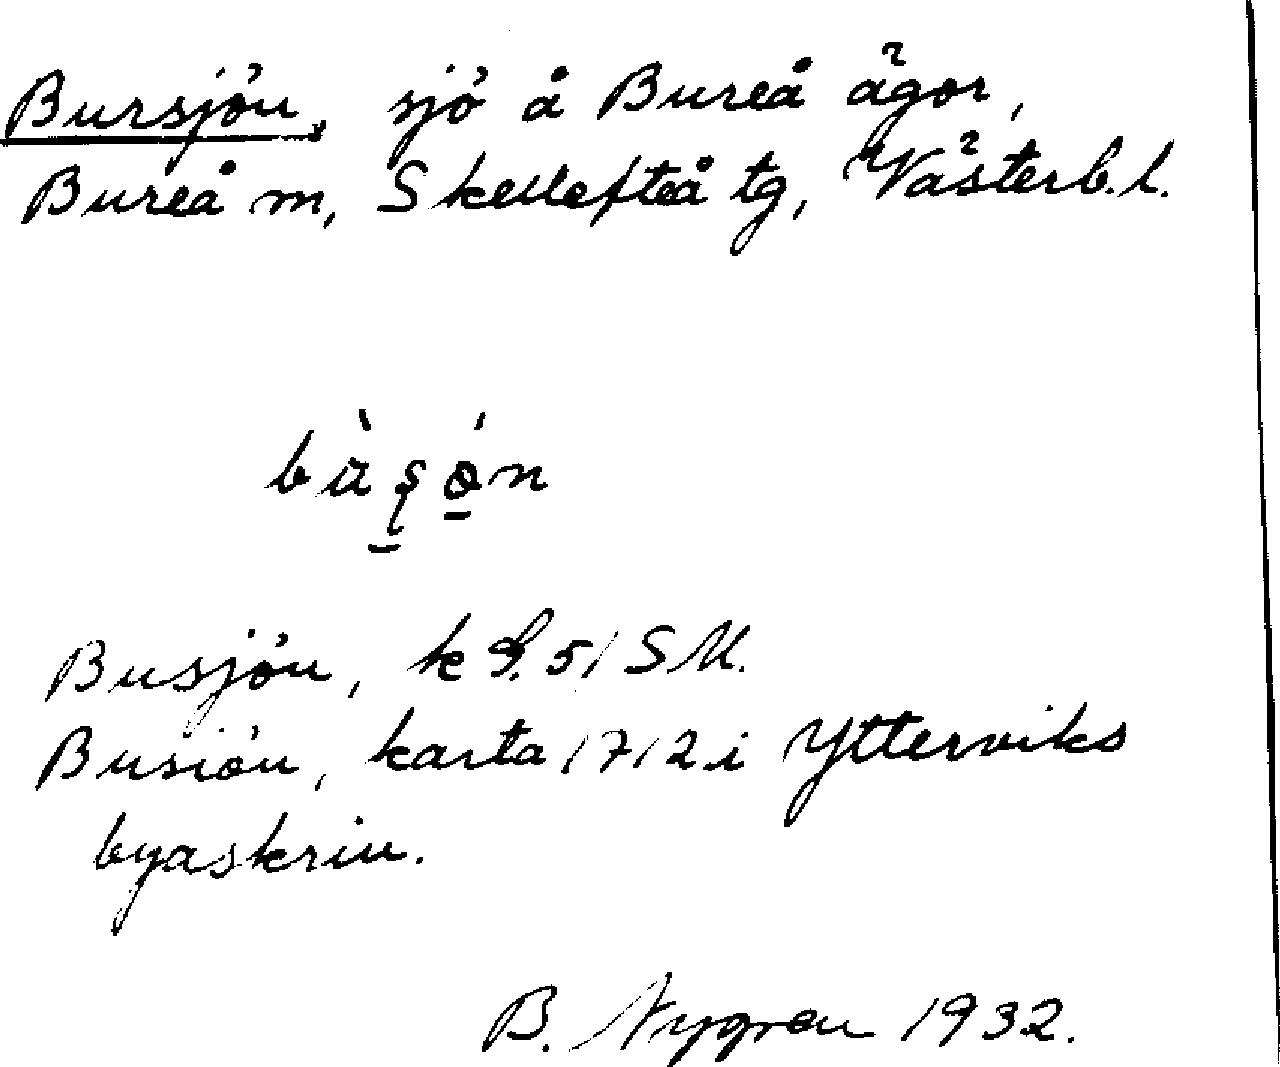 Bursjön, sjö å Bureå ägor,
Bureå m, Skellefteå tg, Västerb. l.
Busjön, k S. 51 S M.
Busiön, karta 1712 i Ytterviks
byaskrin.
B. Nygren 1932.